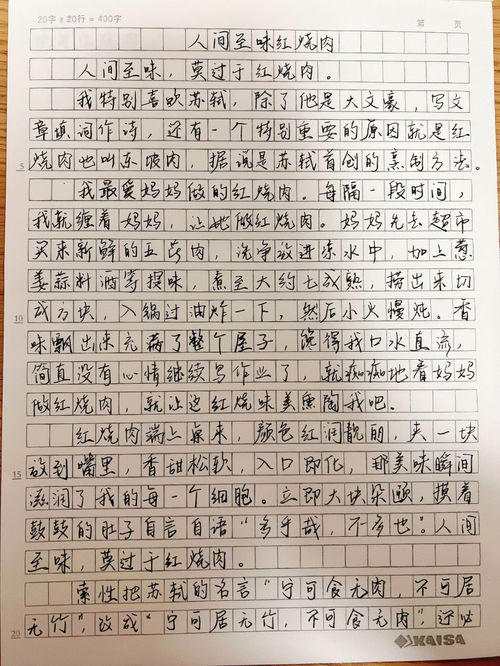 20字 x 20行 = 400字
第 页
人间至味红烧肉
人间至味，莫过于红烧肉。
我特别喜欢苏轼，除了他是大文豪，写文
章填词作诗，还有一个特别重要的原因就是红
5 烧肉也叫东坡肉，据说是苏轼首创的烹制方法。
我最爱妈妈做的红烧肉。每隔一段时间，
我就缠着妈妈，让她做红烧肉。妈妈先去超市
买来新鲜的五花肉，洗净放进凉水中，加上葱
姜蒜料酒等提味，煮至大约七成熟，捞出来切
10 成方块，入锅过油炸一下，然后小火慢炖。香
味飘出来充满了整个屋子，馋得我口水直流，
简直没有心情继续写作业了，就痴痴地看妈妈
做红烧肉，就让这红烧味美熏陶我吧。
红烧肉端上桌来，颜色红润靓丽，夹一块
15 放到嘴里，香甜松软，入口即化，那美味瞬间
滋润了我的每一个细胞。立即大块朵颐，摸着
鼓鼓的肚子自言自语“多乎哉，不多也”。人间
至味，莫过于红烧肉。
索性把苏轼的名言“宁可食无肉，不可居
20 无竹”，改成“宁可居无竹，不可食无肉”，还必
KAISA